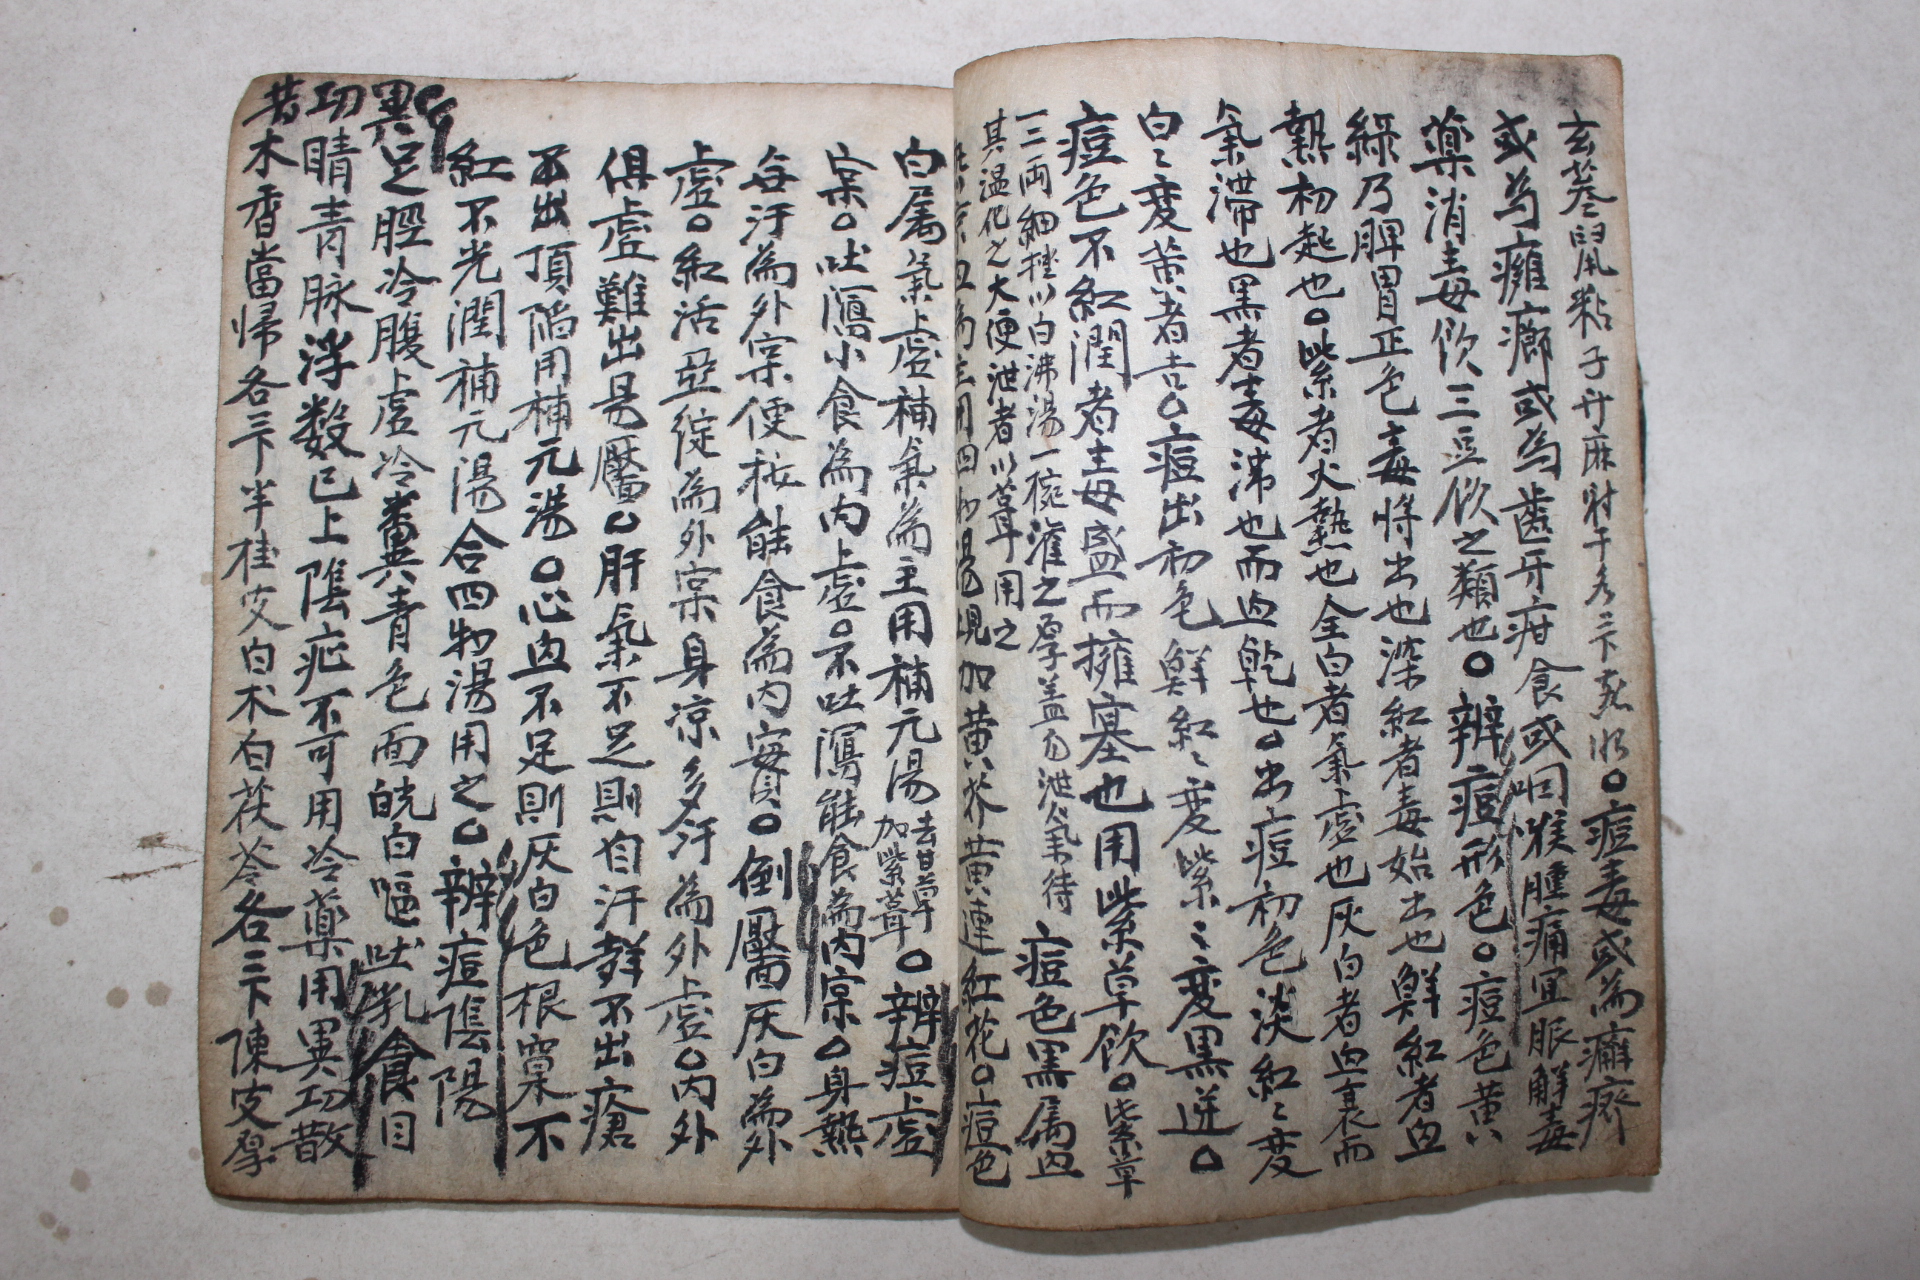 玄葵鼠粘子升麻射干各二下煎服○痘毒或為癰瘠
或為癰癤或為齒牙疳食或咽喉腫痛宜服解毒
藥消毒飮三豆飮之類也○辨痘形色○痘色黃
綠乃脾胃正色毒將出也深紅者毒始出也鮮紅者血
熱初起也○紫者火熱也全白者氣虛也灰白者血衰而
氣滯也黑者毒滯也而血乾也○出痘初色淡紅ミ變
白ミ變黃者吉○痘出初色鮮紅ミ變紫ミ變黑逆○
痘色不紅潤者主毒盛而擁塞也用紫草飮○紫草
一二兩細挫以白沸湯一椀灌之厚盖勿泄氣待
其温化之大便泄者以茸用之
痘色黑属血
血為主用四物湯 加黃芩黃連紅花○痘色
白属氣虛補氣為主用補元湯去甘草
加紫茸
○辨痘虛
宲○吐瀉小食為內虛○不吐瀉能食為內宲○身熱
無汗為外宲便秘能食為內實○倒靨灰白為外
虛○紅活亞綻為外宲身凉多汗為外虛○內外
俱虛難出易靨○肝氣不足則自汗 不出瘡
不出頂陷用補元湯○心血不足則灰白色根窠不
紅不光潤補元湯合四物湯用之○辨痘陰陽
足脛冷腹虛冷糞靑色面皝白嘔吐乳食目
睛靑脉浮数已上陰症不可用冷藥用異功散
異功
木香當歸各三下半桂皮白朮白茯苓各二下陳皮厚